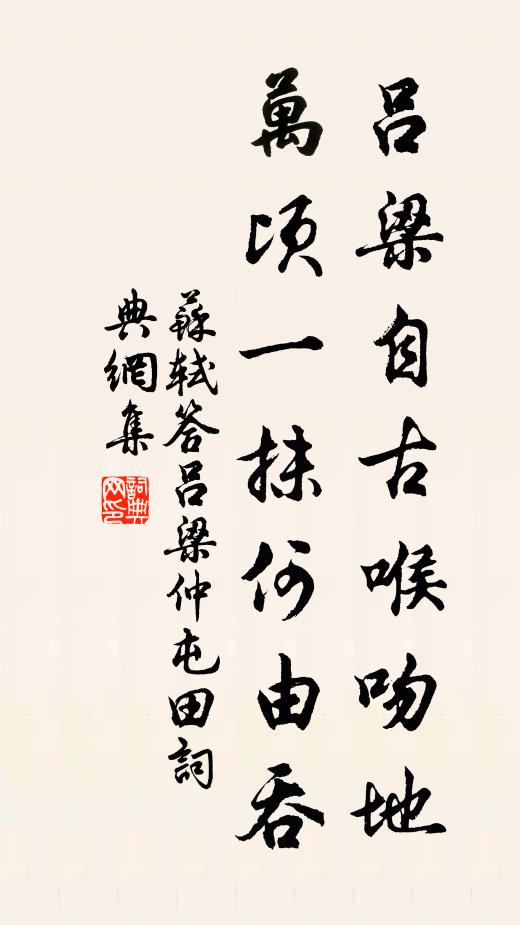 呂梁自古喉吻地
萬頃一抹何由吞
蘇軾答呂梁仲屯田詞
典網集
詞典网印